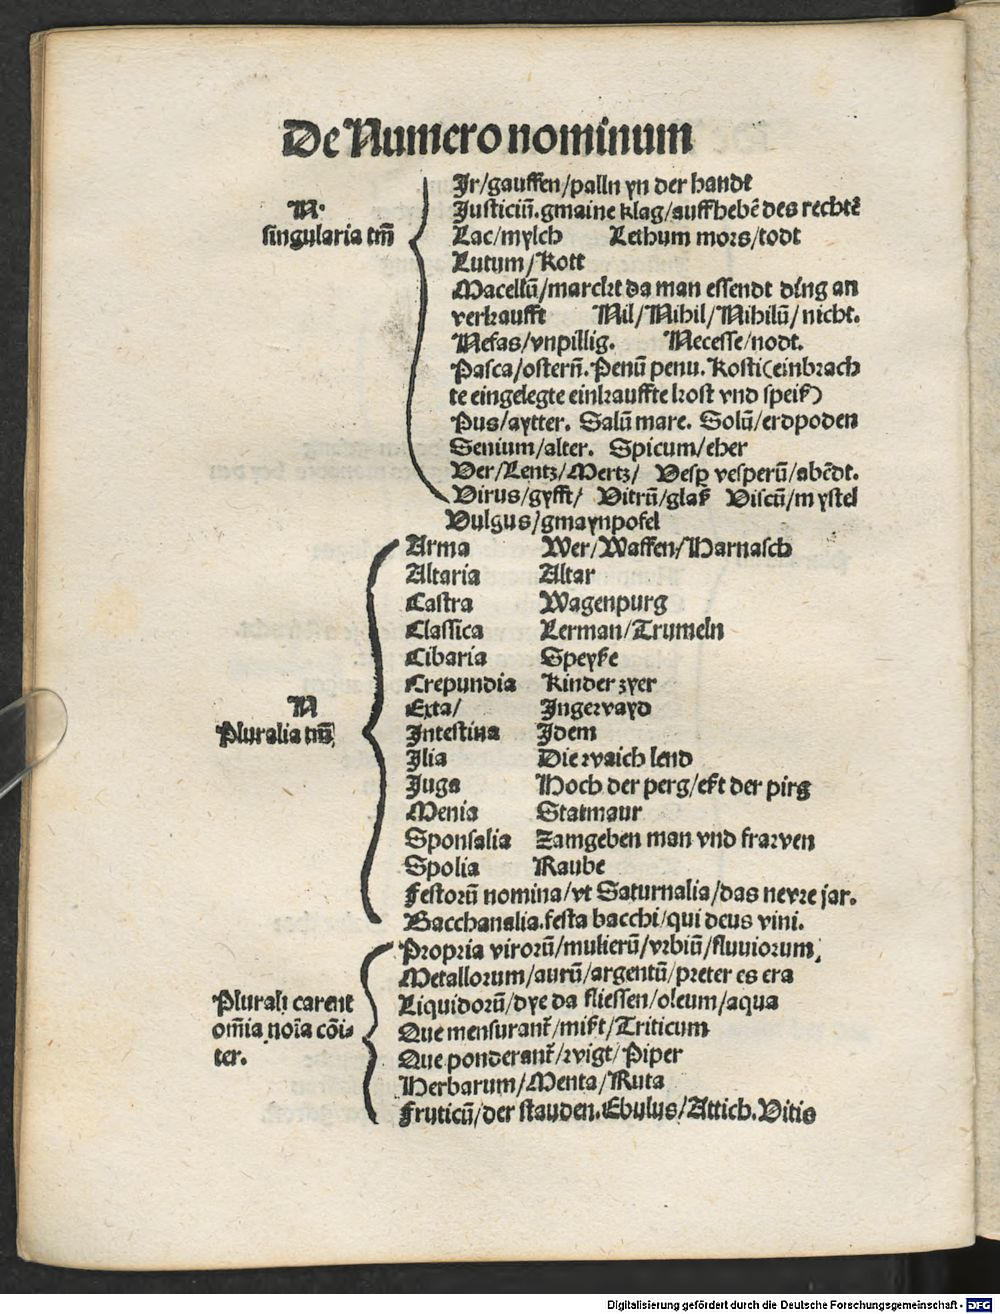 De Numero nominum
Ir/gauffen/palln yn der handt
N.
Justiciū.gmaine klag/auffhebē des rechtē
singularia tm̄
Lac/mylch Lethum mors/todt
Lutum/Kott
Macellū/marckt da man essendt ding an
verkaufft Nil/Nihil/Nihilū/nicht.
Nefas/vnpillig. Necesse/nodt.
Pasca/ostern̄.Penū penu. Kost(einbrach
te eingelegte einkauffte kost vnd speiß)
Pus/aytter. Salū mare. Solū/erdpoden
Senium/alter. Spicum/eher
Ver/Lentz/Mertz/ Vesꝑ vesperū/abēdt.
Virus/gyfft/ Vitrū/glaß Viscū/mystel
Vulgus/gmaynpofel
Arma Wer/Waffen/Harnasch
Altaria Altar
Castra Wagenpurg
Classica Lerman/Trumeln
Cibaria Speyße
Crepundia Kinder zyer
Exta/ Ingerwayd
N
Pluralia tm̄
Intestina Idem
Ilia Die waich lend
Juga Hoch der perg/ekt der pirg
Menia Statmaur
Sponsalia Zamgeben man vnd frawen
Spolia Raube
Festorū nomina/vt Saturnalia/das newe jar.
Bacchanalia.festa bacchi/qui deus vini.
Propria virorū/mulierū/vrbiū/fluuiorum,
Metallorum/aurū/argentū/preter es era
Plurali carent
Liquidorū/dye da fliessen/oleum/aqua
om̄ia noīa cōi-
Que mensurant̄/mißt/Triticum
ter.
Que ponderant̄/wigt/Piper
Herbarum/Menta/Ruta
Fruticū/der stauden.Ebulus/Attich.Vitis
Digitalisierung gefördert durch die Deutsche Forschungsgemeinschaft - DFG